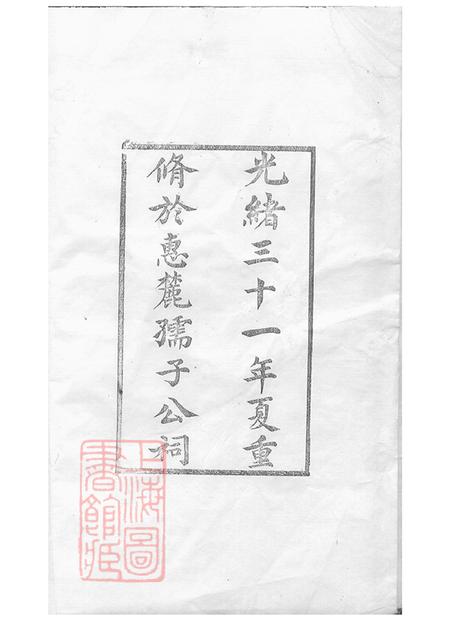 光緒三十一年夏重
脩於惠麓孺子公祠
上海圖
書館藏